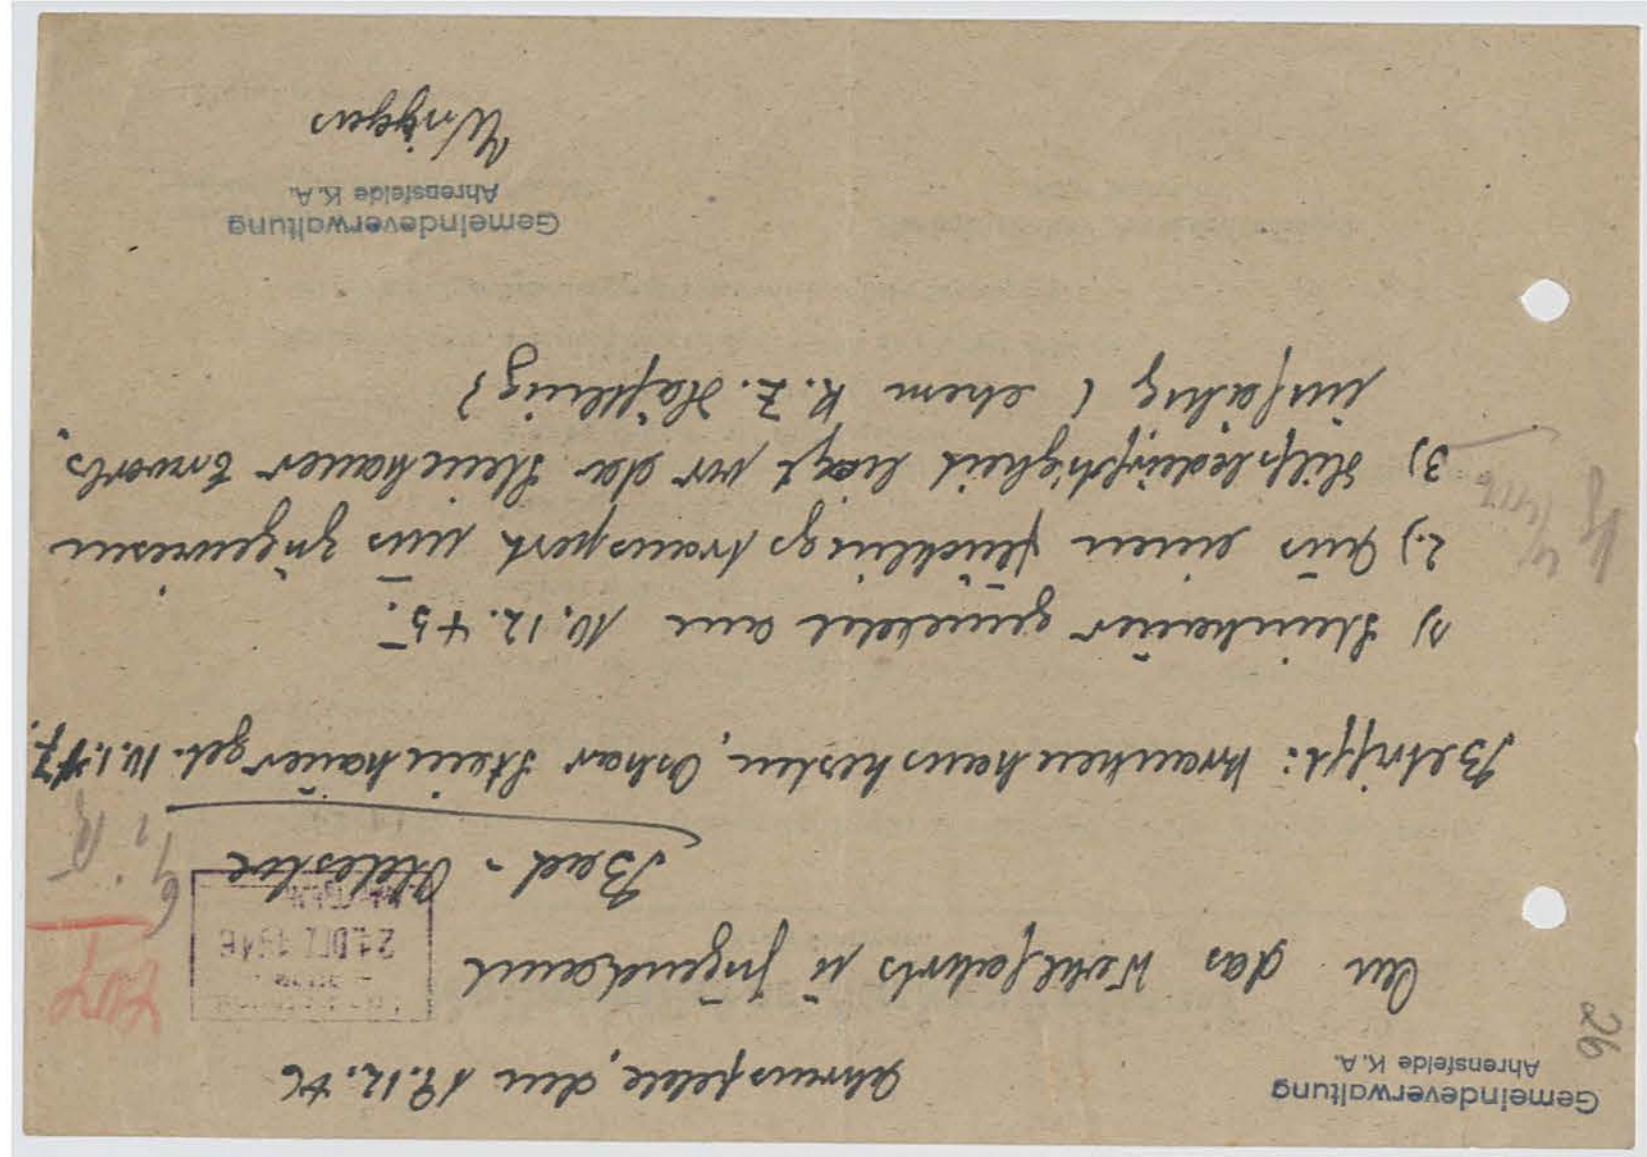 Gemeindeverwaltung
Ahrensfelde K.A.
26
Ahrensfelde, den 19.12.46
An das Wohlfahrts u Jugendamt
Bad-Oldesloe
21.DEZ.1946
Betrifft: Krankenhauskosten, Oskar Steinhauer geb. 10.1.
1) Steinhauer gemeldet am 10.12.45.
2.) Aus einen Flüchlingstransport uns zugewiesen
3) Hilfsbedürftigkeit liegt vor da Steinhauer Erwerbs,
unfähig (ehem K.Z. Häftling)
Gemeindeverwaltung
Ahrensfelde K.A.
Wriggers